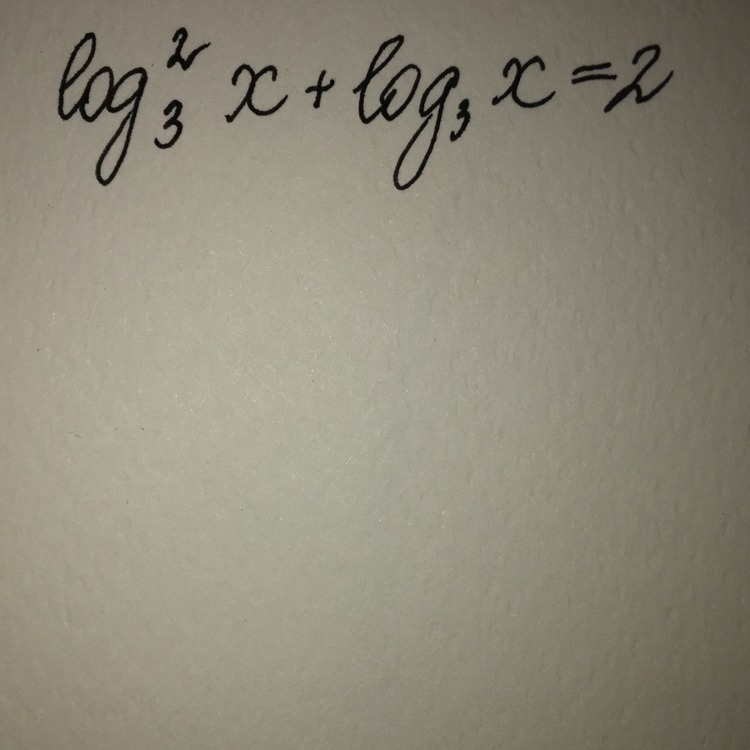 log₃² x + log₃ x = 2